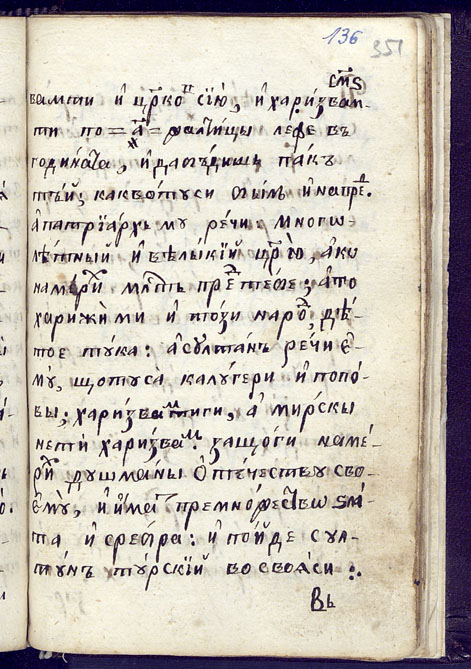 136
351
смѕ
вамти и црко сїю, и харизвам-
ти по =а҃= ралищы лефе въ
годината, и да гѣдишъ пакъ
тъй, како отуси огым и напре.
а патриархъ му речи: много
лѣтный и вѣлыкїй црю, ако
намери млсть пре тебе; а то
харижи ми и този наро, дѣ-
тое тука: а султанъ речи е-
му, що туса калугери и попо-
вы; харизвам ти ги, а мирскы
не ти харизвам. защо ги наме-
ри душманы отечеству сво-
ему, и има премножество зла-
та и сребра: и пойде сул-
тунъ турскїй во своаси :.
Въ